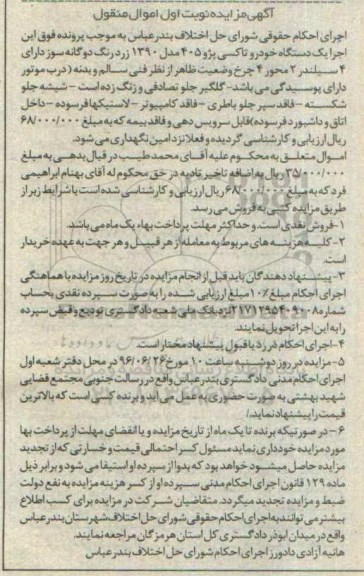 آگهی مزایده نوبت اول اموال منقول
اجرای احکام حقوقی شورای حل اختلاف بندرعباس به موجب پرونده فوق این
اجرا یک دستگاه خودرو تاکسی پژو ۴۰۵ مدل ۱۳۹۰ زرد رنگ دوگانه سوز دارای
۴ سیلندر ۲ محور ۴ چرخ وضعیت ظاهر از نظر فنی سالم و بدنه (درب موتور
دارای پوسیدگی می باشد- گلگیر جلو تصادفی و زنگ زده است - شیشه جلو
شکسته - فاقد سپر جلو باطری - فاقد کامپیوتر - لاستیکها فرسوده - داخل
اتاق و داشبورد فرسوده) قابل سرویس دهی و فاقد بیمه که به مبلغ ۶۸/۰۰۰/۰۰۰
ریال ارزیابی و کارشناسی گردیده و فعلا نزد امین نگهداری می شود.
اموال متعلق به محکوم علیه آقای محمد طیب در قبال بدهی به مبلغ
۳۵/۰۰۰/۰۰۰ ریال به اضافه تاخیر تادیه در حق محکوم له آقای بهنام ابراهیمی
فرد که به مبلغ ۶۸/۰۰۰/۰۰۰ ریال ارزیابی و کارشناسی شده است با شرایط زیر از
طریق مزایده کتبی به فروش می رسد.
۱-فروش نقدی است، و حداکثر مهلت پرداخت بهاء یک ماه می باشد.
۲- کلیه هزینه های مربوط به معامله از هر قبیل و هر جهت به عهده خریدار
است.
۳- پیشنهاد دهندگان باید قبل از انجام مزایده در تاریخ روز مزایده با هماهنگی
اجرای احکام مبلغ ۱۰٪ مبلغ ارزیابی شده را به صورت سپرده نقدی بحساب
شماره نزد بانک ملی شعبه دادگستری تودیع و فیش سپرده
را به این اجرا تحویل نمایند.
۴-اجرای احکام در رد یا قبول پیشنهاد مختار است.
۵- مزایده در روز دوشنبه ساعت ۱۰ مورخ ۹۶/۰۶/۲۶ در محل دفتر شعبه اول
اجرای احکام مدنی دادگستری بندرعباس واقع در رسالت جنوبی مجتمع قضایی
شهید بهشتی به صورت حضوری به عمل می آید و برنده کسی است که بالاترین
قیمت را پیشنهاد نماید/
۶- در صورتیکه برنده تا یک ماه از تاریخ مزایده و یا انقضای مهلت از پرداخت بها
مورد مزایده خودداری نماید مسئول کسر احتمالی قیمت و خسارتی که از تجدید
مزایده حاصل میشود خواهد بود که بدوا از سپرده او استیفا می شود و برابر ذیل
ماده ۱۲۹ قانون اجرای احکام مدنی سپرده او از کسر هزینه مزایده به نفع دولت
ضبط و مزایده تجدید میگردد. متقاضیان شرکت در مزایده برای کسب اطلاع
بیشتر می توانند به اجرای احکام حقوقی شورای حل اختلاف شهرستان بندرعباس
واقع در میدان ابوذر دادگستری کل استان هرمزگان مراجعه نمایند.
هانیه آزادی دادورز اجرای احکام شورای حل اختلاف بندرعباس